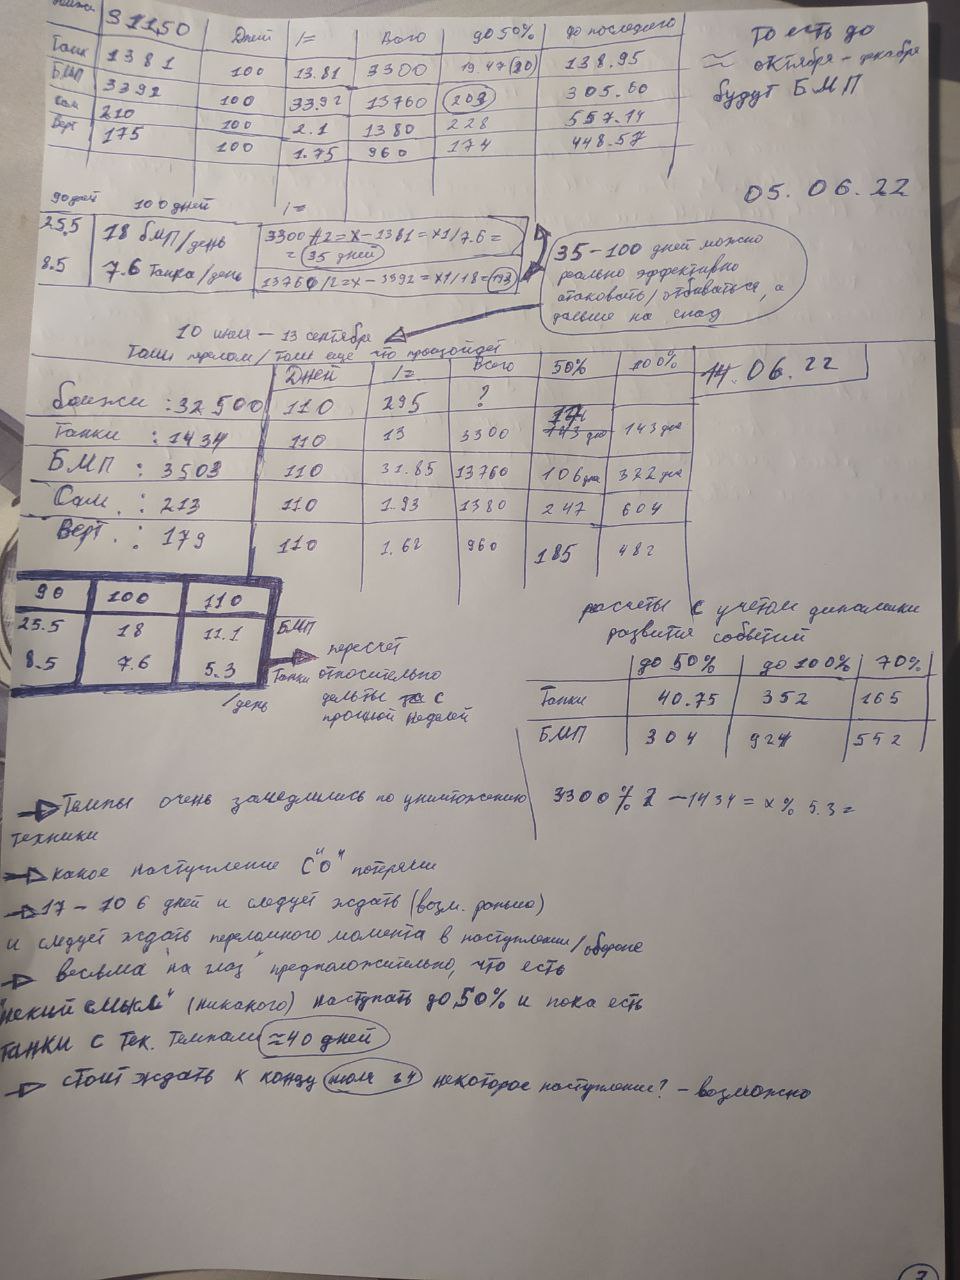 31150 | Дней | /= | Всего | до 50% | до последнего
Танк | 1381 | 100 | 13.81 | 3300 | 19.47 (20) | 138.95
БМП | 3392 | 100 | 33.92 | 13760 | 203 | 305.60
Сам | 210 | 100 | 2.1 | 1380 | 228 | 557.14
Верт | 175 | 100 | 1.75 | 960 | 174 | 448.57
То есть до
≈ октября - декабря
будут БМП
05.06.22
90 дней 100 дней /=
25.5 | 18 БМП/день
8.5 | 7.6 танка/день
3300/2=x-1381=x1/7.6=
= 35 дней
13760/2=x-3392=x1/18=193
35-100 дней можно
реально эффективно
атаковать/отбиваться, а
дальше на спад
10 июля — 13 сентября
Танки перелом/Танк еще что произойдет
14.06.22
Дней | /= | Всего | 50% | 100%
бомжи : 32500 | 110 | 295 | ?
Танки : 1434 | 110 | 13 | 3300 | 17 | 143 дня
БМП : 3503 | 110 | 31.85 | 13760 | 106 дня | 322 дня
Сам. : 213 | 110 | 1.93 | 1380 | 247 | 604
Верт. : 179 | 110 | 1.62 | 960 | 185 | 482
90 | 100 | 110
25.5 | 18 | 11.1 БМП
8.5 | 7.6 | 5.3 Танки
/день
пересчет
относительно
дельты с
прошлой неделей
расчеты с учетом динамики
развития событий
до 50% | до 100% | 70%
Танки | 40.75 | 352 | 165
БМП | 304 | 924 | 552
3300 % 2 - 1434 = x % 5.3 =
→ Темпы очень замедлились по уничтожению
техники
→ какое наступление с "0" потерями
→ 17 - 106 дней и следует ждать (возм. раньше)
и следует ждать переломного момента в наступлении/обороне
→ весьма "на глаз" предположительно, что есть
"некий смысл" (никакого) наступать до 50% и пока есть
танки с тек. темпами ≈40 дней
→ стоит ждать к концу июля 24 некоторое наступление? - возможно